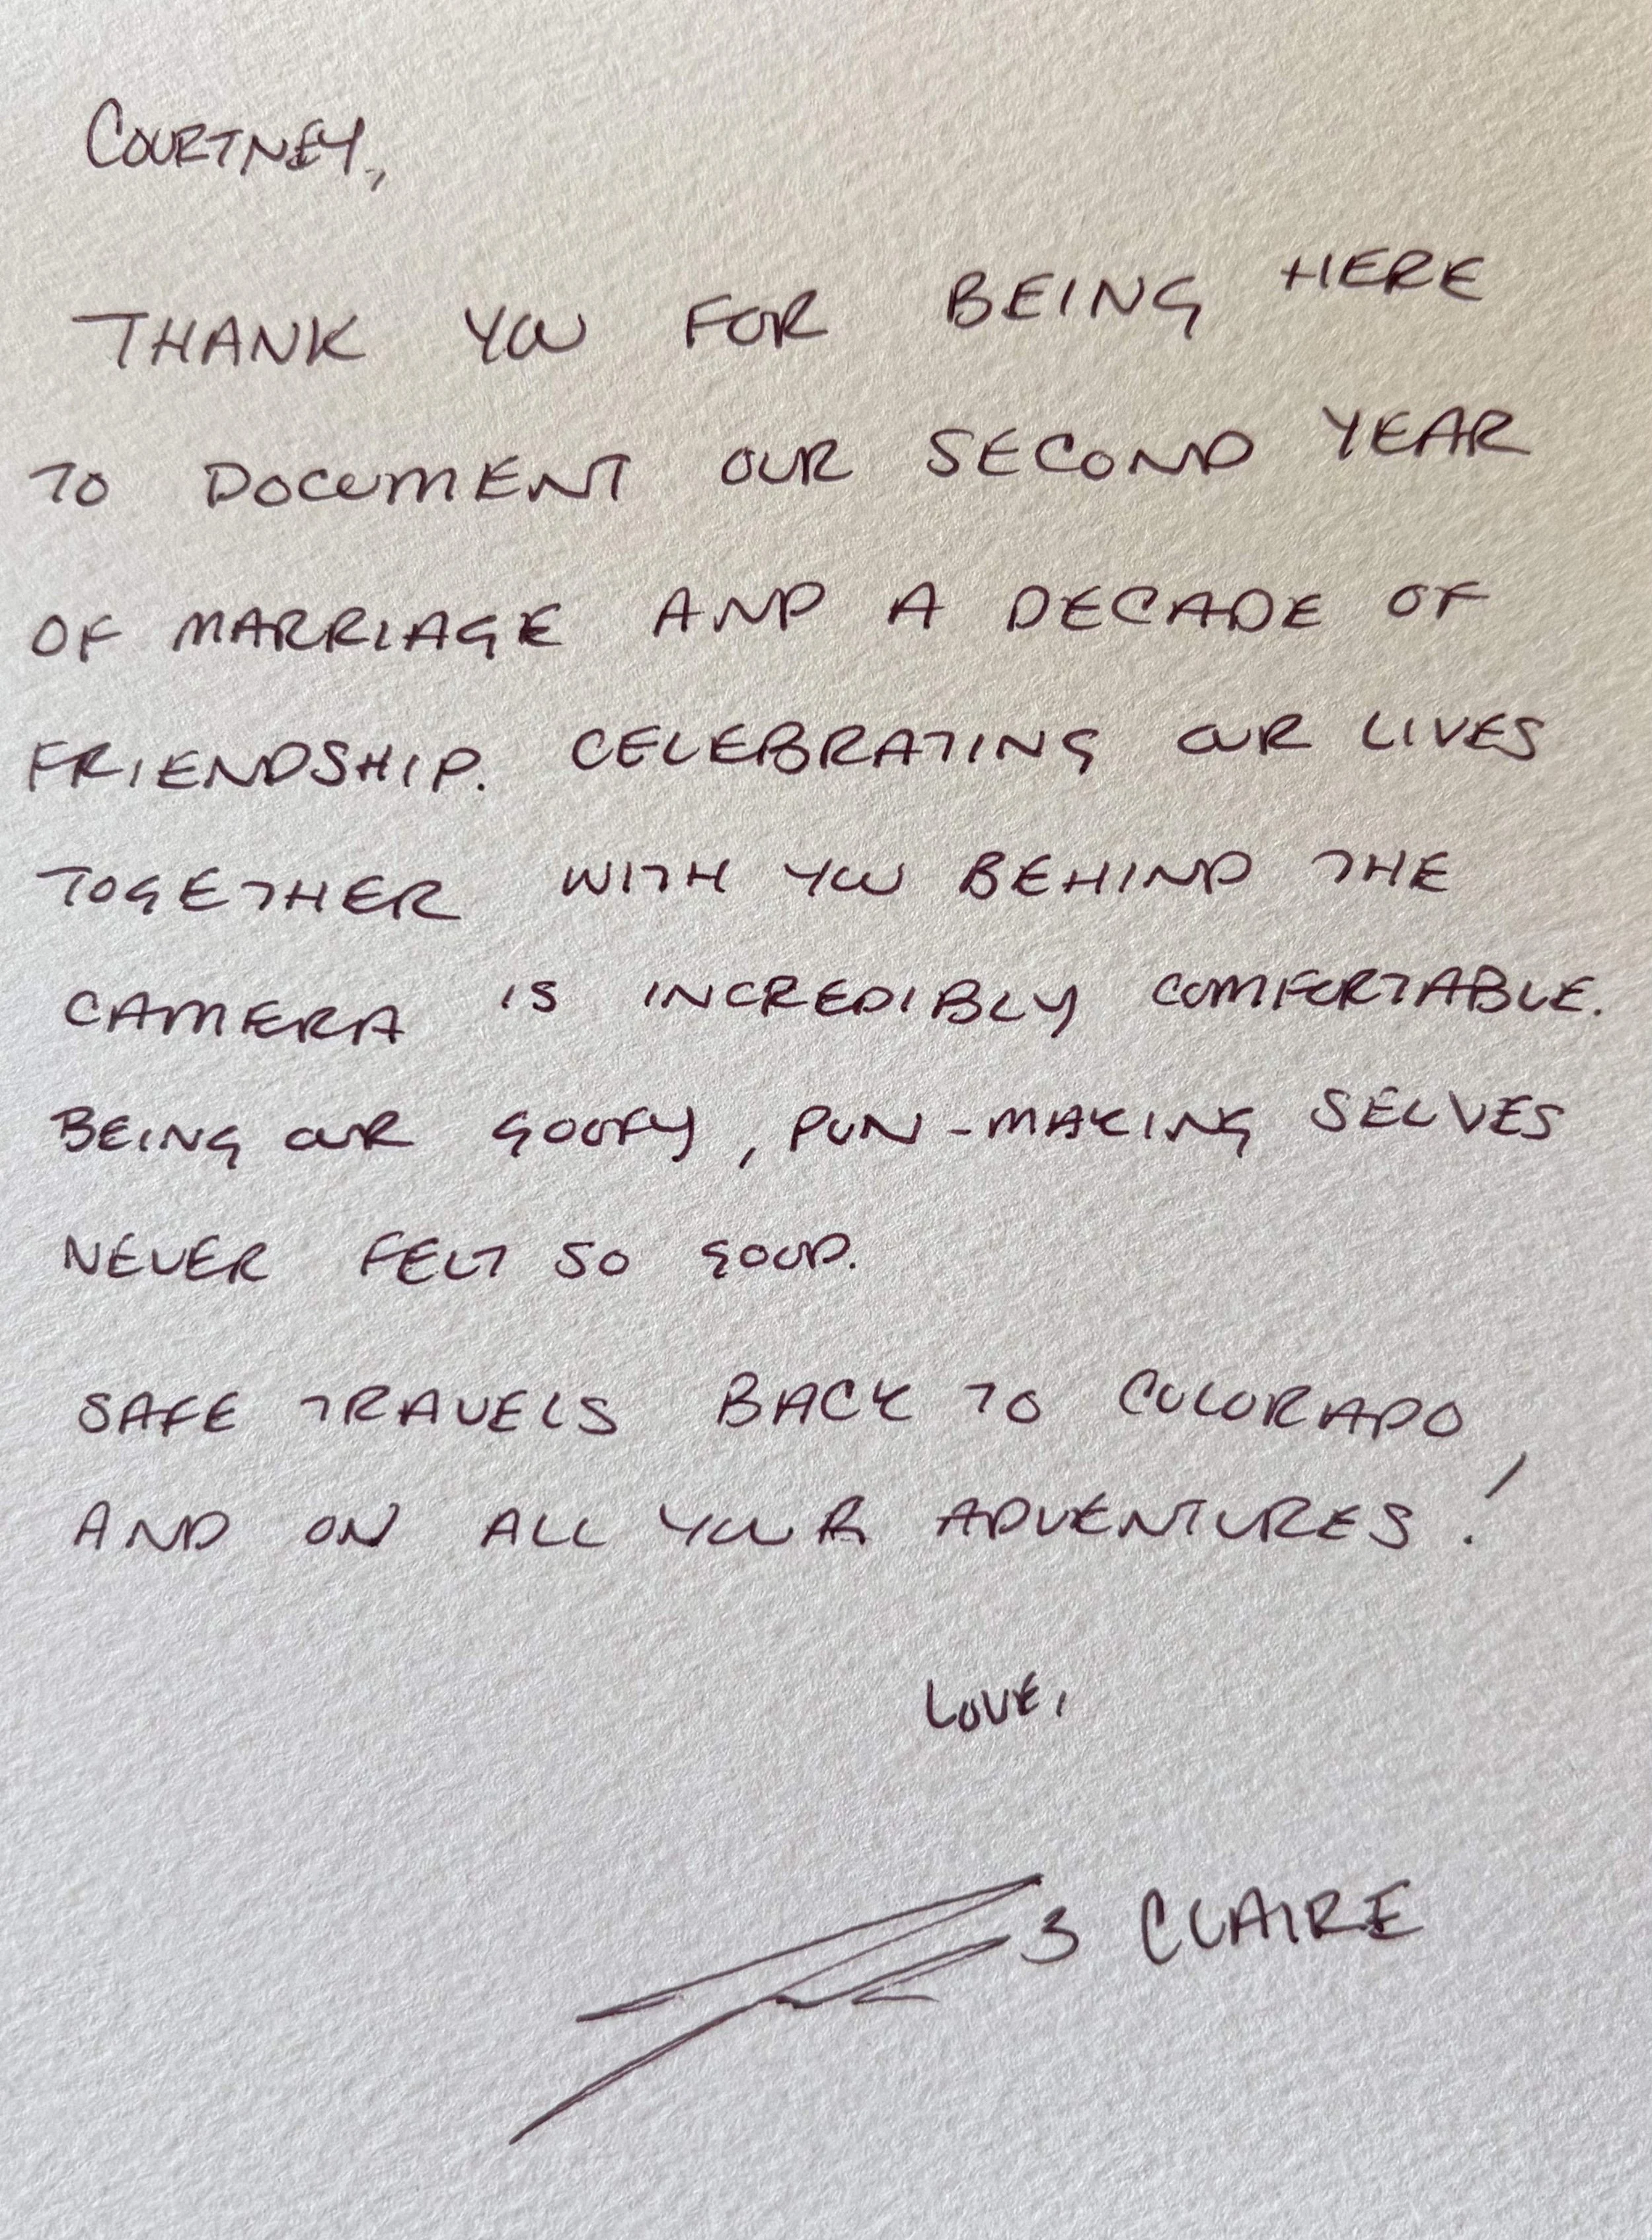 COURTNEY,
THANK YOU FOR BEING HERE
TO DOCUMENT OUR SECOND YEAR
OF MARRIAGE AND A DECADE OF
FRIENDSHIP. CELEBRATING OUR LIVES
TOGETHER WITH YOU BEHIND THE
CAMERA IS INCREDIBLY COMFORTABLE.
BEING OUR GOOFY, PUN-MAKING SELVES
NEVER FELT SO GOOD.
SAFE TRAVELS BACK TO COLORADO
AND ON ALL YOUR ADVENTURES!
LOVE,
CLAIRE